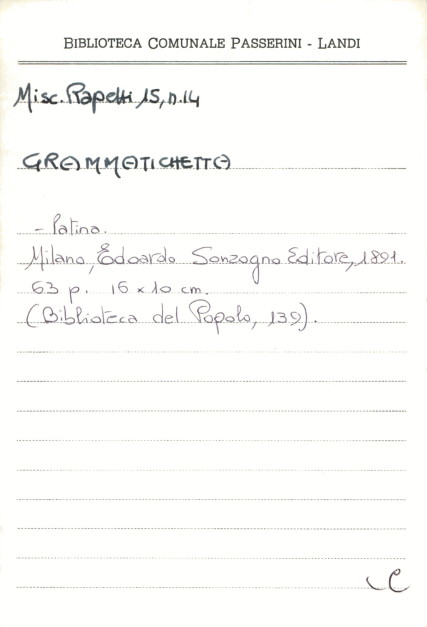 BIBLIOTECA COMUNALE PASSERINI - LANDI
Misc. Rapetti 15, n.14
GRAMMATICHETTA
- latina.
Milano, Edoardo Sonzogno Editore, 1891.
63 p. 16 x 10 cm.
(Biblioteca del Popolo, 139).